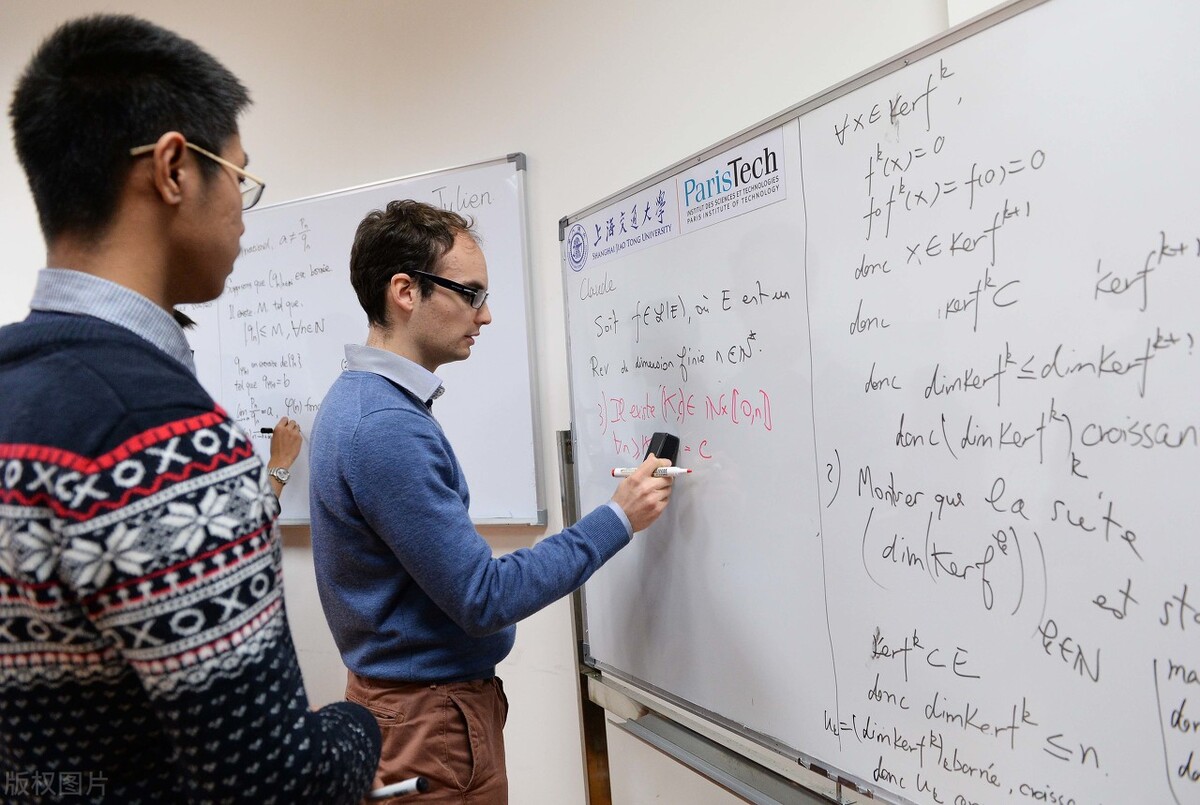 Julien
a ≠ Pn/qn
Supposons que (qn)n∈N est bornée
Il existe M tel que
|qn| ≤ M, ∀n∈N
tel que = b
上海交通大学
SHANGHAI JIAO TONG UNIVERSITY
ParisTech
INSTITUT DES SCIENCES ET TECHNOLOGIES
PARIS INSTITUTE OF TECHNOLOGY
Claude
Soit f∈L(E), où E est un
Rev de dimension finie n∈N*.
3) Il existe (K,c)∈ N×[0,n]
∀n≥ = c
∀x∈Kerf^k,
f^k(x)=0
fof^k(x)=f(0)=0
donc x∈Kerf^k+1
donc Kerf^k⊂ Kerf^k+1
donc dimKerf^k≤dimKerf^k+1
donc (dimKerf^k)k croissan
2) Montrer que la suite
(dim(Kerf^k))k∈N est sta
Kerf^k⊂E
donc dimKerf^k≤n.
uk=(dimKerf^k)k bornée, croissa
donc uk
版权图片